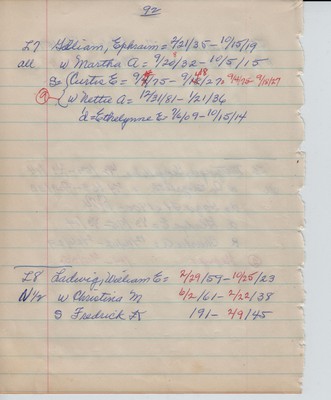 92
L7 Gilliam, Ephraim = 2/21/35 - 10/15/19
all w Martha A = 9/20/32 - 10/5/15
S Curtis E = 9/ /75 - 9/18/27 9/14/75 - 9/18/27
w Nettie A = 12/31/81 - 1/21/36
d = Ethelynne E = 7/6/09 - 10/15/14
L8 Ludwig, William E = 2/29/59 - 10/25/23
N 1/2 w Christina M 6/2/61 - 2/22/38
S Fredrick 191 - 2/9/45